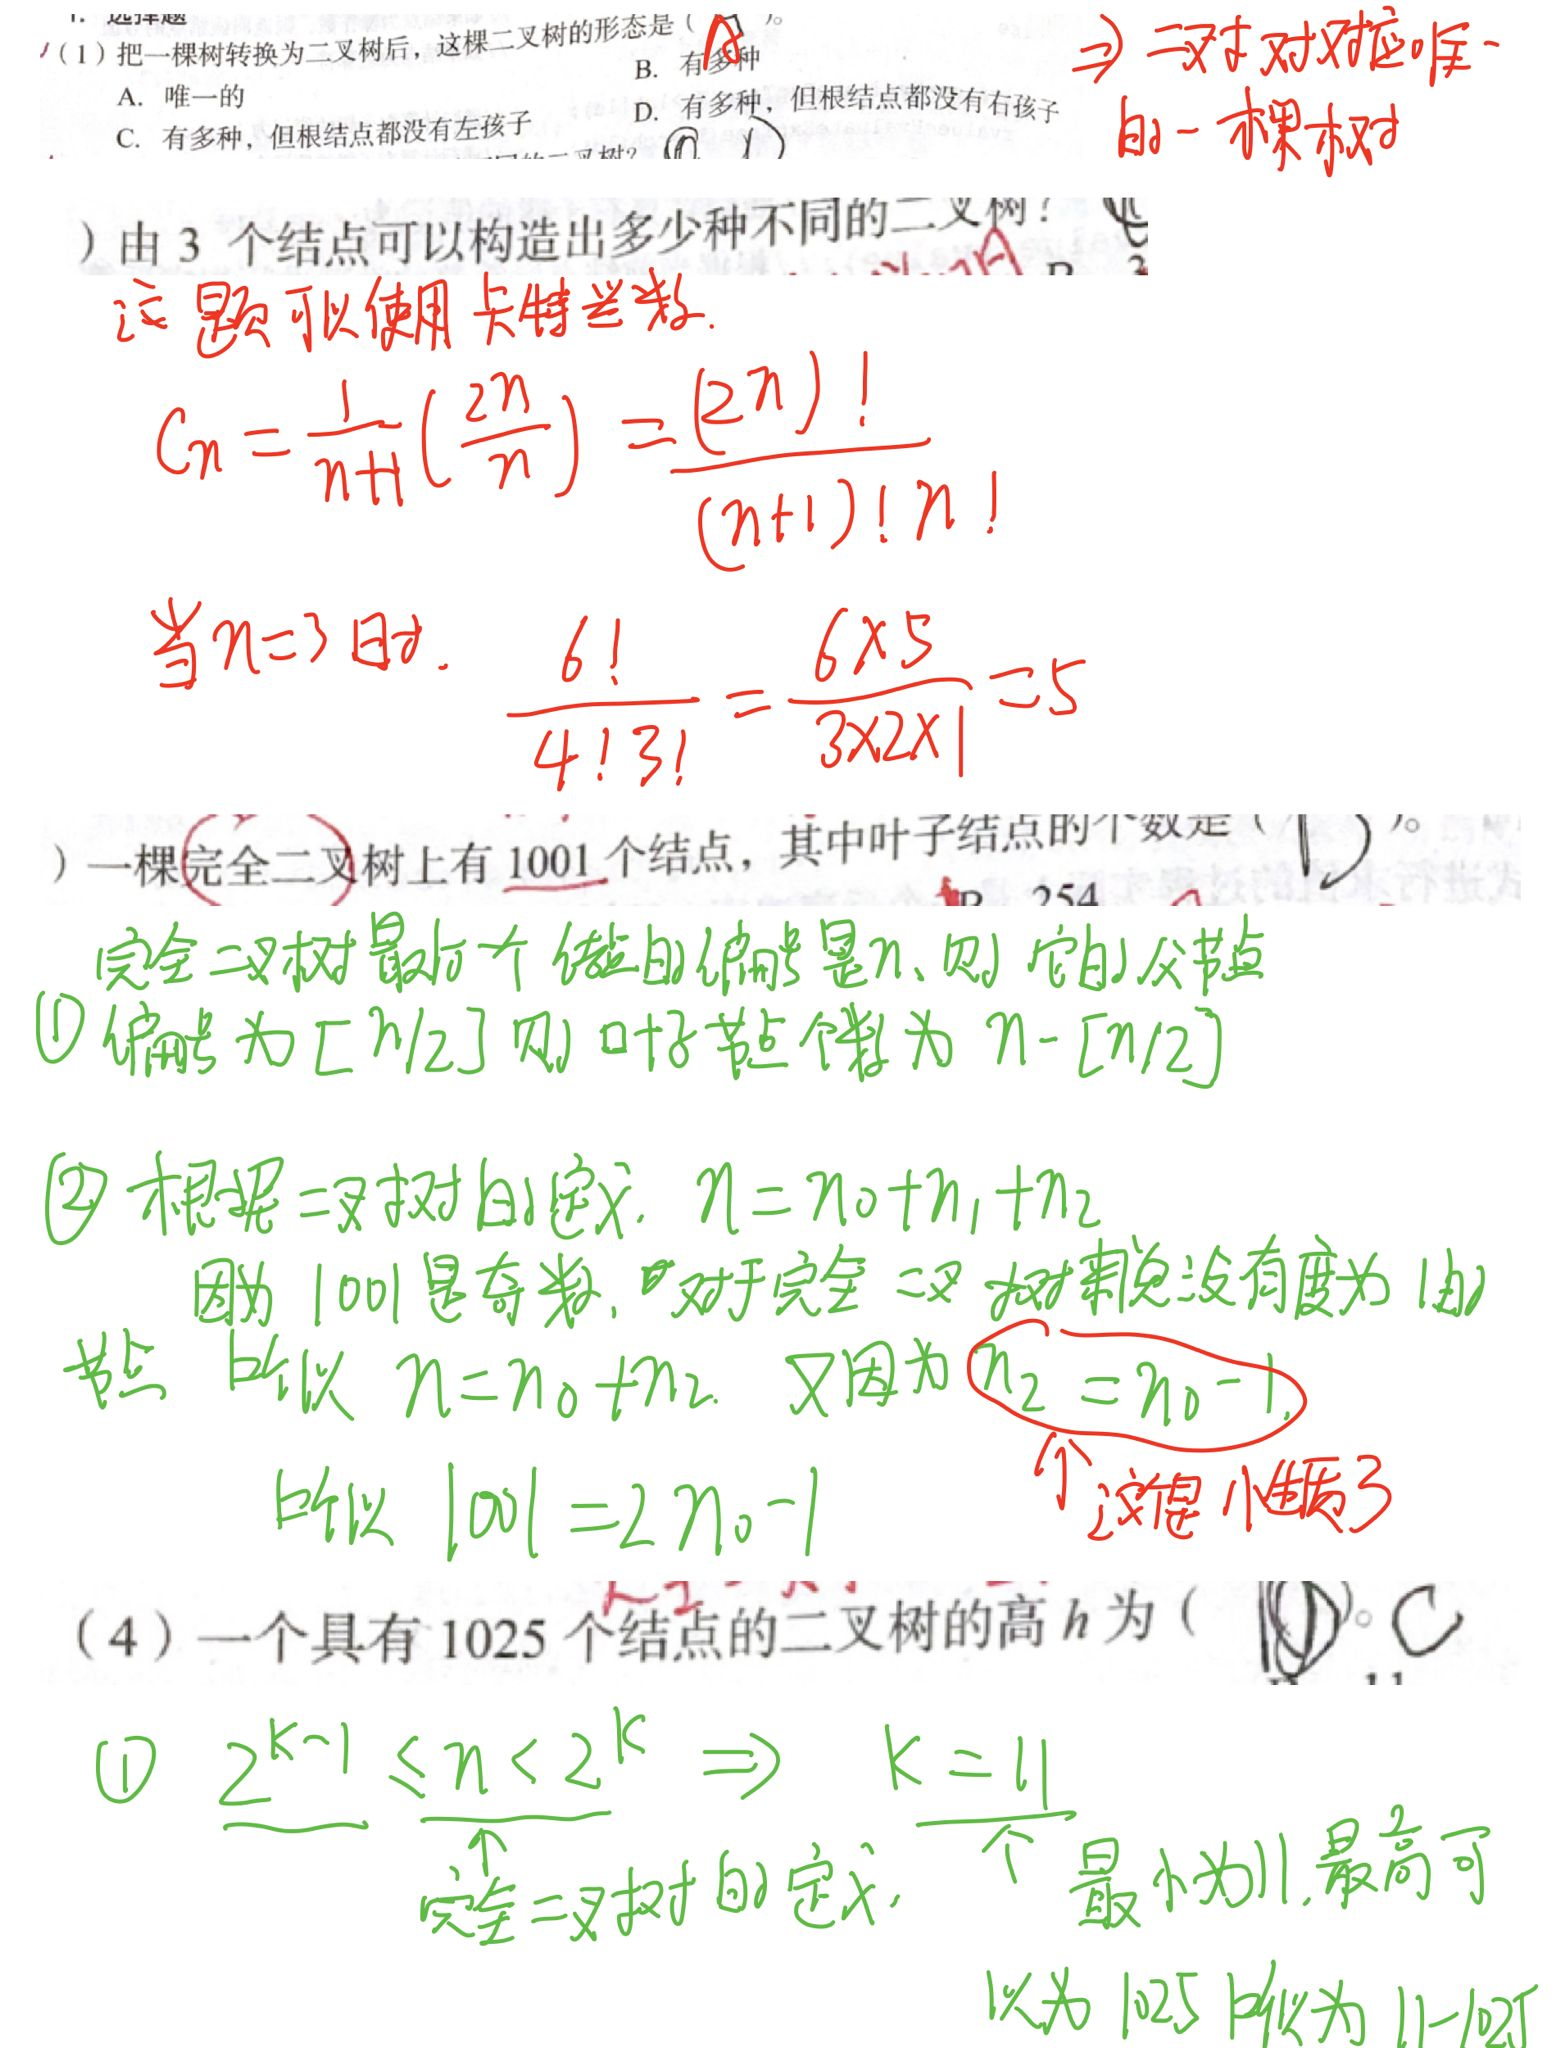 1. 选择题
(1) 把一棵树转换为二叉树后，这棵二叉树的形态是( A )。
A. 唯一的
B. 有多种
C. 有多种，但根结点都没有左孩子
D. 有多种，但根结点都没有右孩子
⇒ 二叉树对应唯一
的一棵树
)由 3 个结点可以构造出多少种不同的二叉树？
这题可以使用卡特兰数.
Cn = 1/(n+1) (2n/n) = (2n)! / (n+1)! n!
当n=3时. 6! / 4! 3! = 6×5 / 3×2×1 = 5
)一棵完全二叉树上有 1001 个结点，其中叶子结点的个数是( D )。
254
完全二叉树最后一个结点的编号是n、则它的父节点
① 编号为[n/2] 则叶子节点个数为 n-[n/2]
② 根据二叉树的定义. n=n0+n1+n2
因为1001是奇数, 对于完全二叉树来说没有度为1的
节点 所以 n=n0+n2. 又因为 n2=n0-1.
↑这是性质3
所以 1001=2n0-1
(4) 一个具有 1025 个结点的二叉树的高 h 为( )。C
① 2^(k-1) ≤ n < 2^k ⇒ k=11
↑ ↑
完全二叉树的定义. 最小为11. 最高可
以为 1025 所以为 11-1025